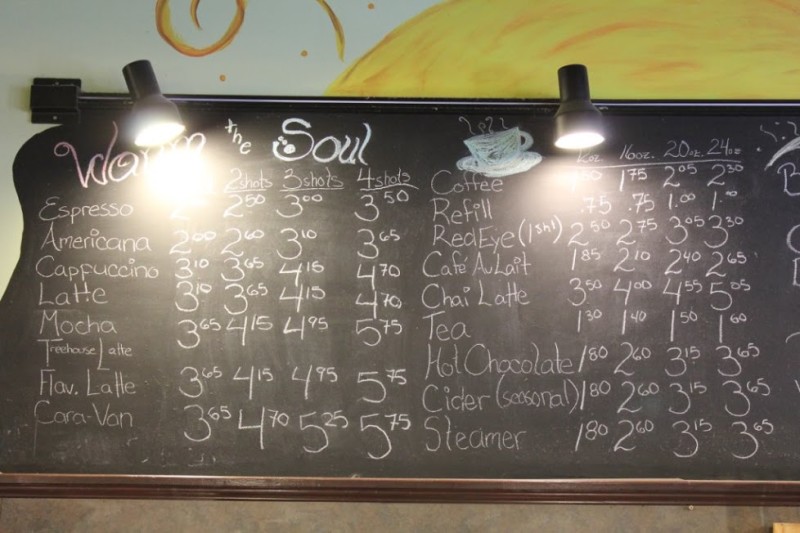 Warm the Soul
2shots 3shots 4shots
Espresso 2 2.50 3.00 3.50
Americana 2.00 2.60 3.10 3.65
Cappuccino 3.10 3.65 4.15 4.70
Latte 3.10 3.65 4.15 4.70
Mocha 3.65 4.15 4.95 5.75
Treehouse Latte
Flav. Latte 3.65 4.15 4.95 5.75
Cara-Van 3.65 4.70 5.25 5.75
16oz. 20oz. 24oz
Coffee 1.75 2.05 2.30
Refill .75 .75 1.00 1.00
RedEye (1sht) 2.50 2.75 3.05 3.30
Café Au Lait 1.85 2.10 2.40 2.65
Chai Latte 3.50 4.00 4.55 5.05
Tea 1.30 1.40 1.50 1.60
Hot Chocolate 1.80 2.60 3.15 3.65
Cider (seasonal) 1.80 2.60 3.15 3.65
Steamer 1.80 2.60 3.15 3.65